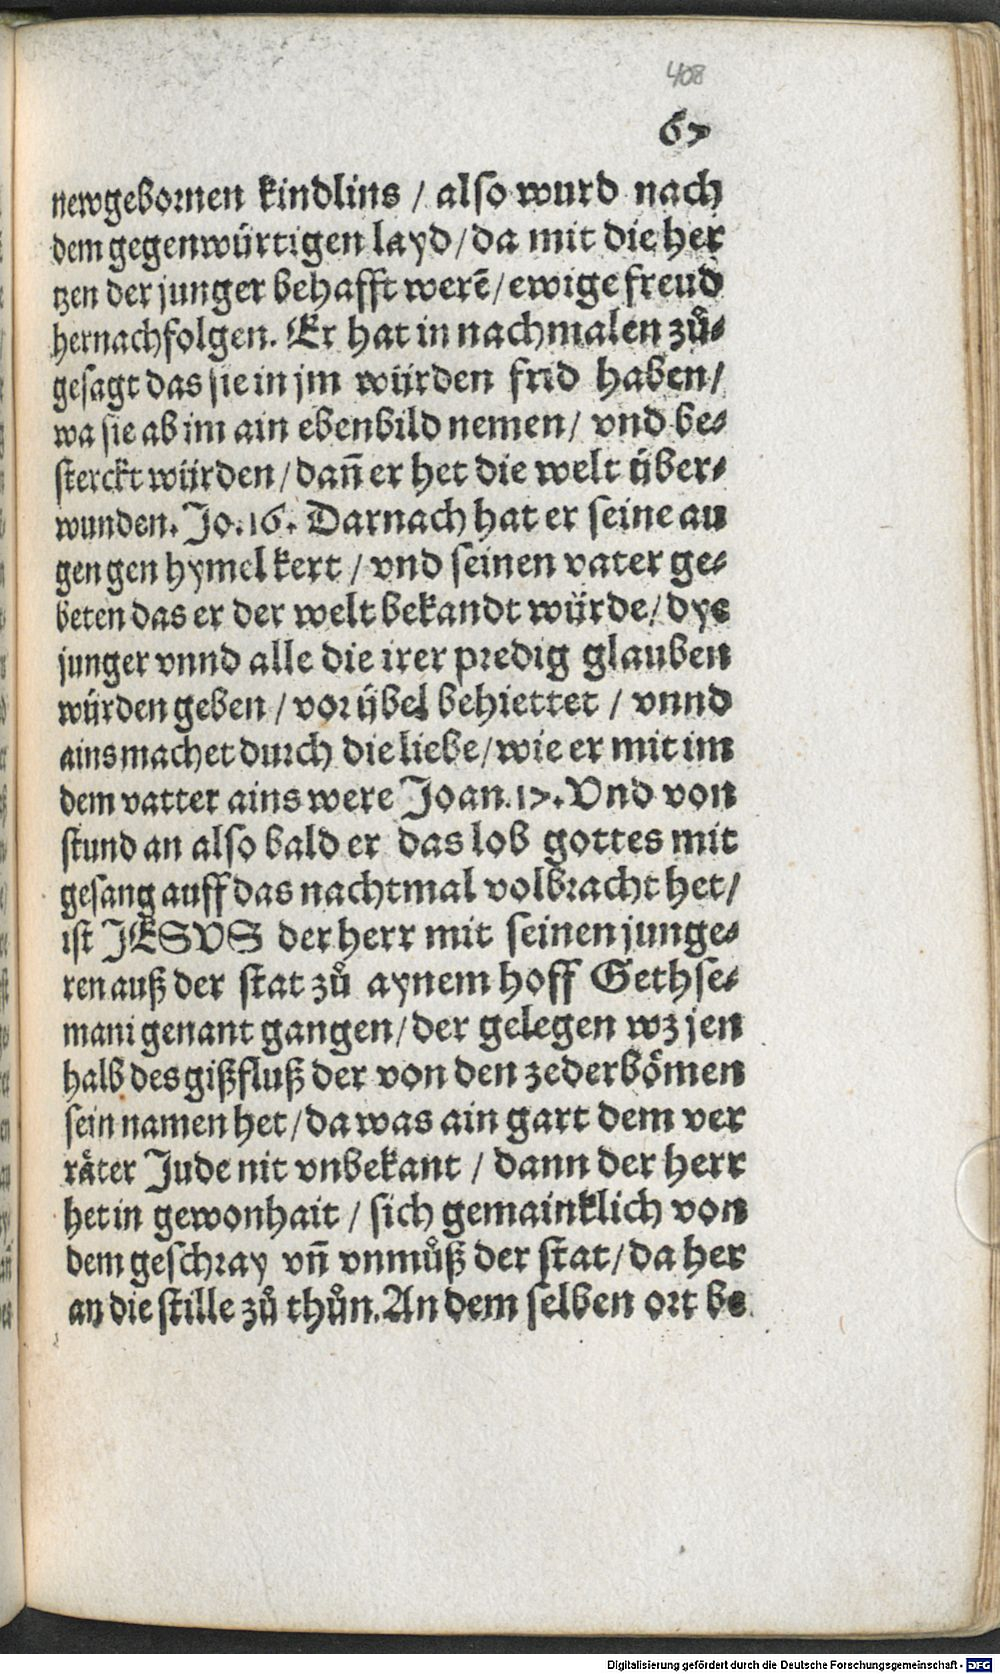 408
67
newgebornen kindlins / also wurd nach
dem gegenwürtigen layd / da mit die her
tzen der junger behafft werē / ewige freud
hernachfolgen. Er hat in nachmalen zů-
gesagt das sie in jm würden frid haben /
wa sie ab im ain ebenbild nemen / vnd be-
sterckt würden / dañ er het die welt über-
wunden. Jo. 16. Darnach hat er seine au
gen gen hymel kert / vnd seinen vater ge-
beten das er der welt bekandt würde / dye
junger vnnd alle die irer predig glauben
würden geben / vor übel behiettet / vnnd
ains machet durch die liebe / wie er mit im
dem vatter ains were Joan. 17. Vnd von
stund an also bald er das lob gottes mit
gesang auff das nachtmal volbracht het /
ist JESVS der herr mit seinen junge-
ren auß der stat zů aynem hoff Gethse-
mani genant gangen / der gelegen wz jen
halb des gißfluß der von den zederbömen
sein namen het / da was ain gart dem ver
räter Jude nit vnbekant / dann der herr
het in gewonhait / sich gemainklich von
dem geschray vñ vnmůß der stat / da her
an die stille zů thůn. An dem selben ort be
Digitalisierung gefördert durch die Deutsche Forschungsgemeinschaft - DFG